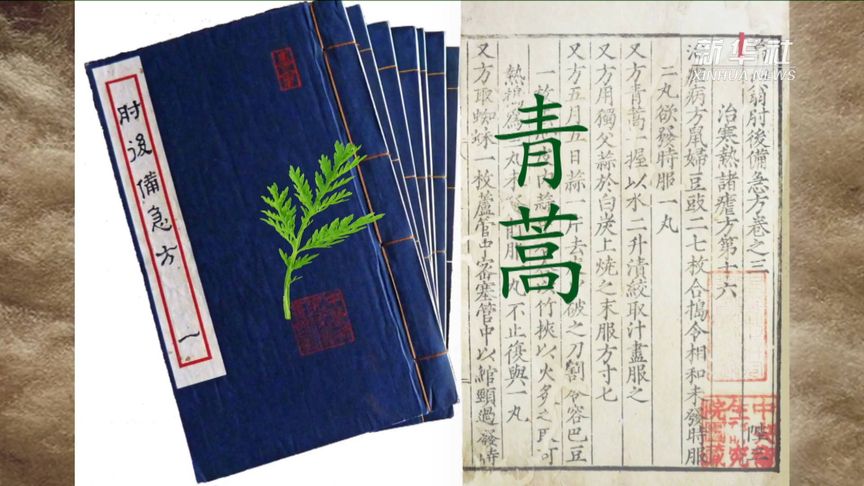 肘後備急方 一
青蒿
新华社
XINHUA NEWS
翁肘後備急方卷之三
治寒熱諸瘧方第十六
病方鼠婦豆豉二七枚合搗令相和未發時服
二丸欲發時服一丸
又方青蒿一握以水二升漬絞取汁盡服之
又方用獨父蒜於白炭上燒之末服方寸七
又方五月五日蒜一斤去
破之刀割令容巴豆
一枚
竹挾以火
可
熱搗為
丸不止復與一丸
又方取蜘蛛一枚蘆管中密塞管中以綰頸過發時